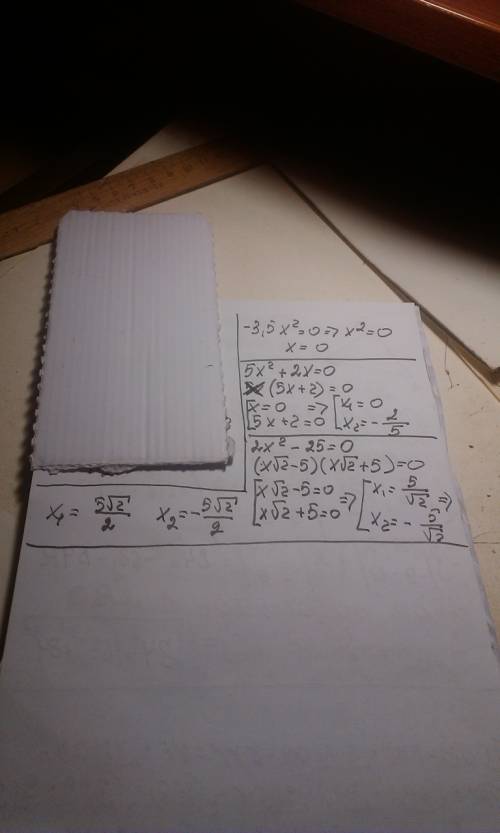 -3,5x²=0=>x²=0
x=0
5x²+2x=0
x(5x+2)=0
[x=0 => [x₁=0
[5x+2=0 [x₂=-2/5
2x²-25=0
(x√2-5)(x√2+5)=0
[x√2-5=0 => [x₁=5/√2 =>
[x√2+5=0 [x₂=-5/√2
x₁=5√2/2 x₂=-5√2/2